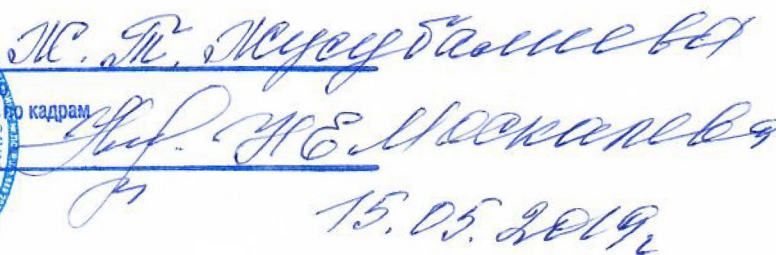 Ж. Т. Жусубалиева
по кадрам
Н Е Москалева
15.05.2019г